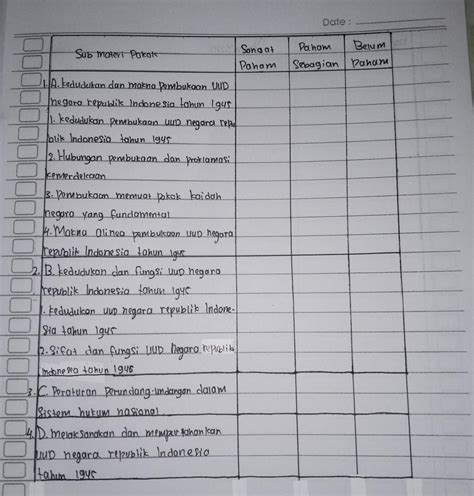 Date :
Sub materi Pokok
Sangat Paham
Paham Sebagian
Belum Paham
1. A. kedudukan dan makna pembukaan UUD
negara republik Indonesia tahun 1945
1. kedudukan pembukaan UUD negara repu
blik Indonesia tahun 1945
2. Hubungan pembukaan dan proklamasi
kemerdekaan
3. Pembukaan memuat pokok kaidah
negara yang fundamental
4. Makna alinea pembukaan UUD negara
republik Indonesia tahun 1945
2. B. kedudukan dan fungsi UUD negara
republik Indonesia tahun 1945
1. kedudukan UUD negara republik Indone-
sia tahun 1945
2. Sifat dan fungsi UUD Negara republik
indonesia tahun 1945
3. C. Peraturan perundang-undangan dalam
sistem hukum nasional
4. D. Melaksanakan dan mempertahankan
UUD negara republik Indonesia
tahun 1945